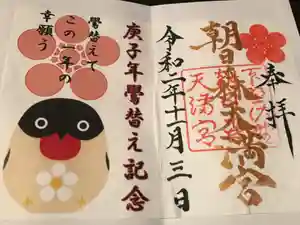 奉拝
朝日森天満宮
天満宮
令和二年十一月三日
庚子年鷽替え記念
鷽替えて
この一年の
幸願う